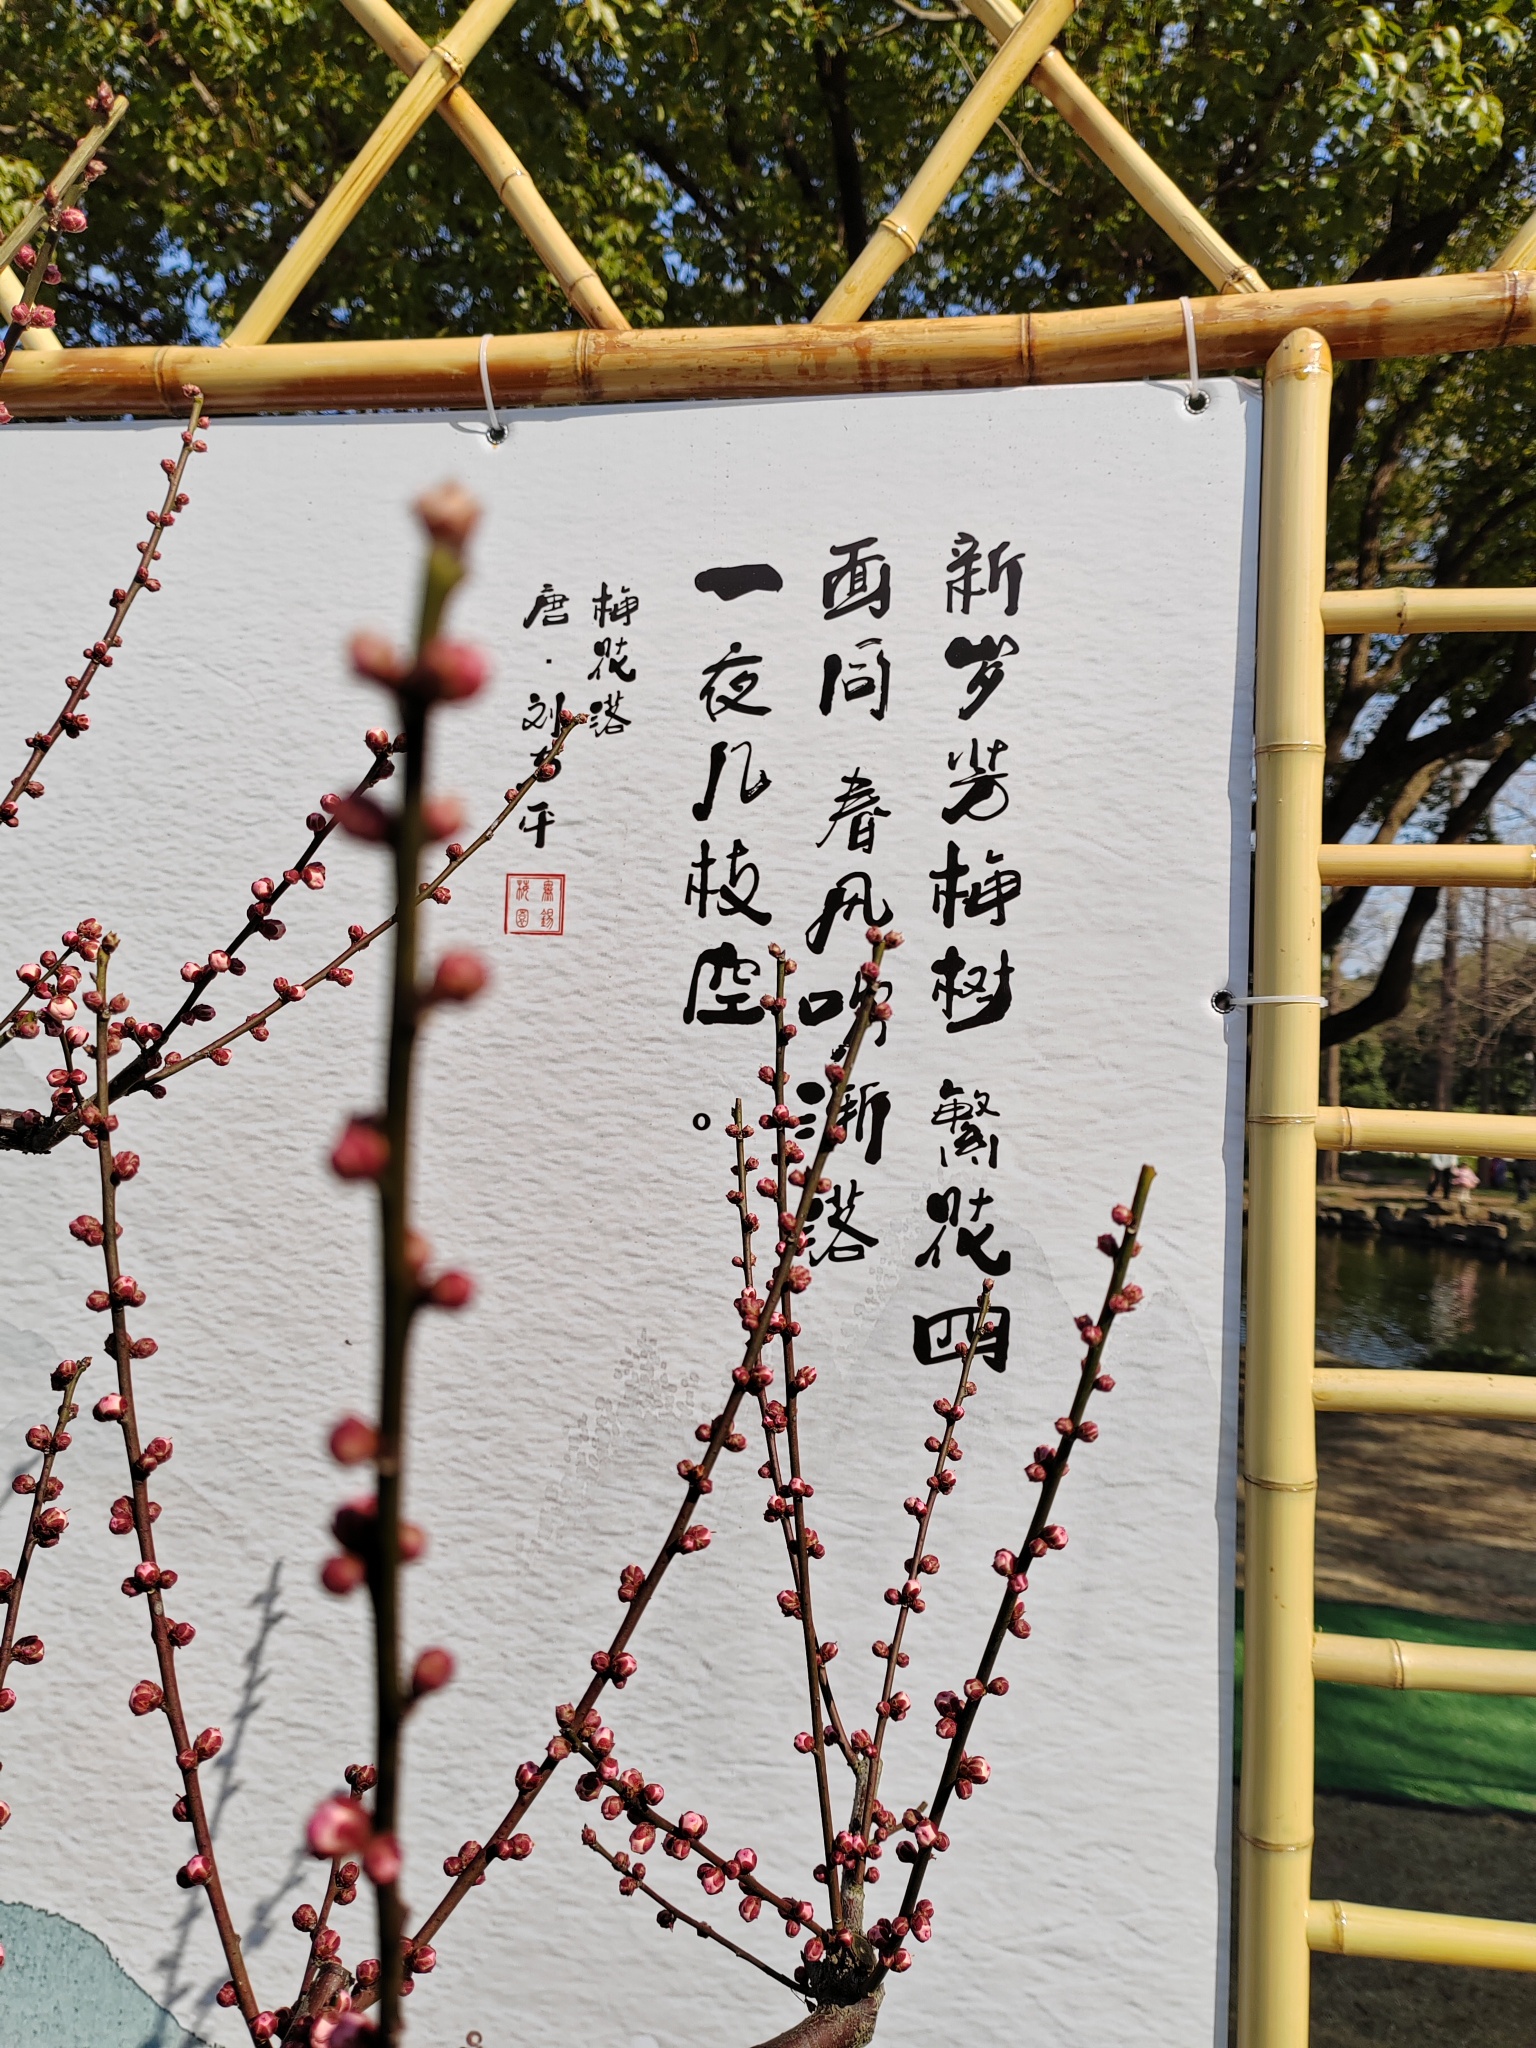 新岁芳梅树 繁花四
面同 春风吹渐落
一夜几枝空。
梅花落
唐·刘方平
無錫
梅園